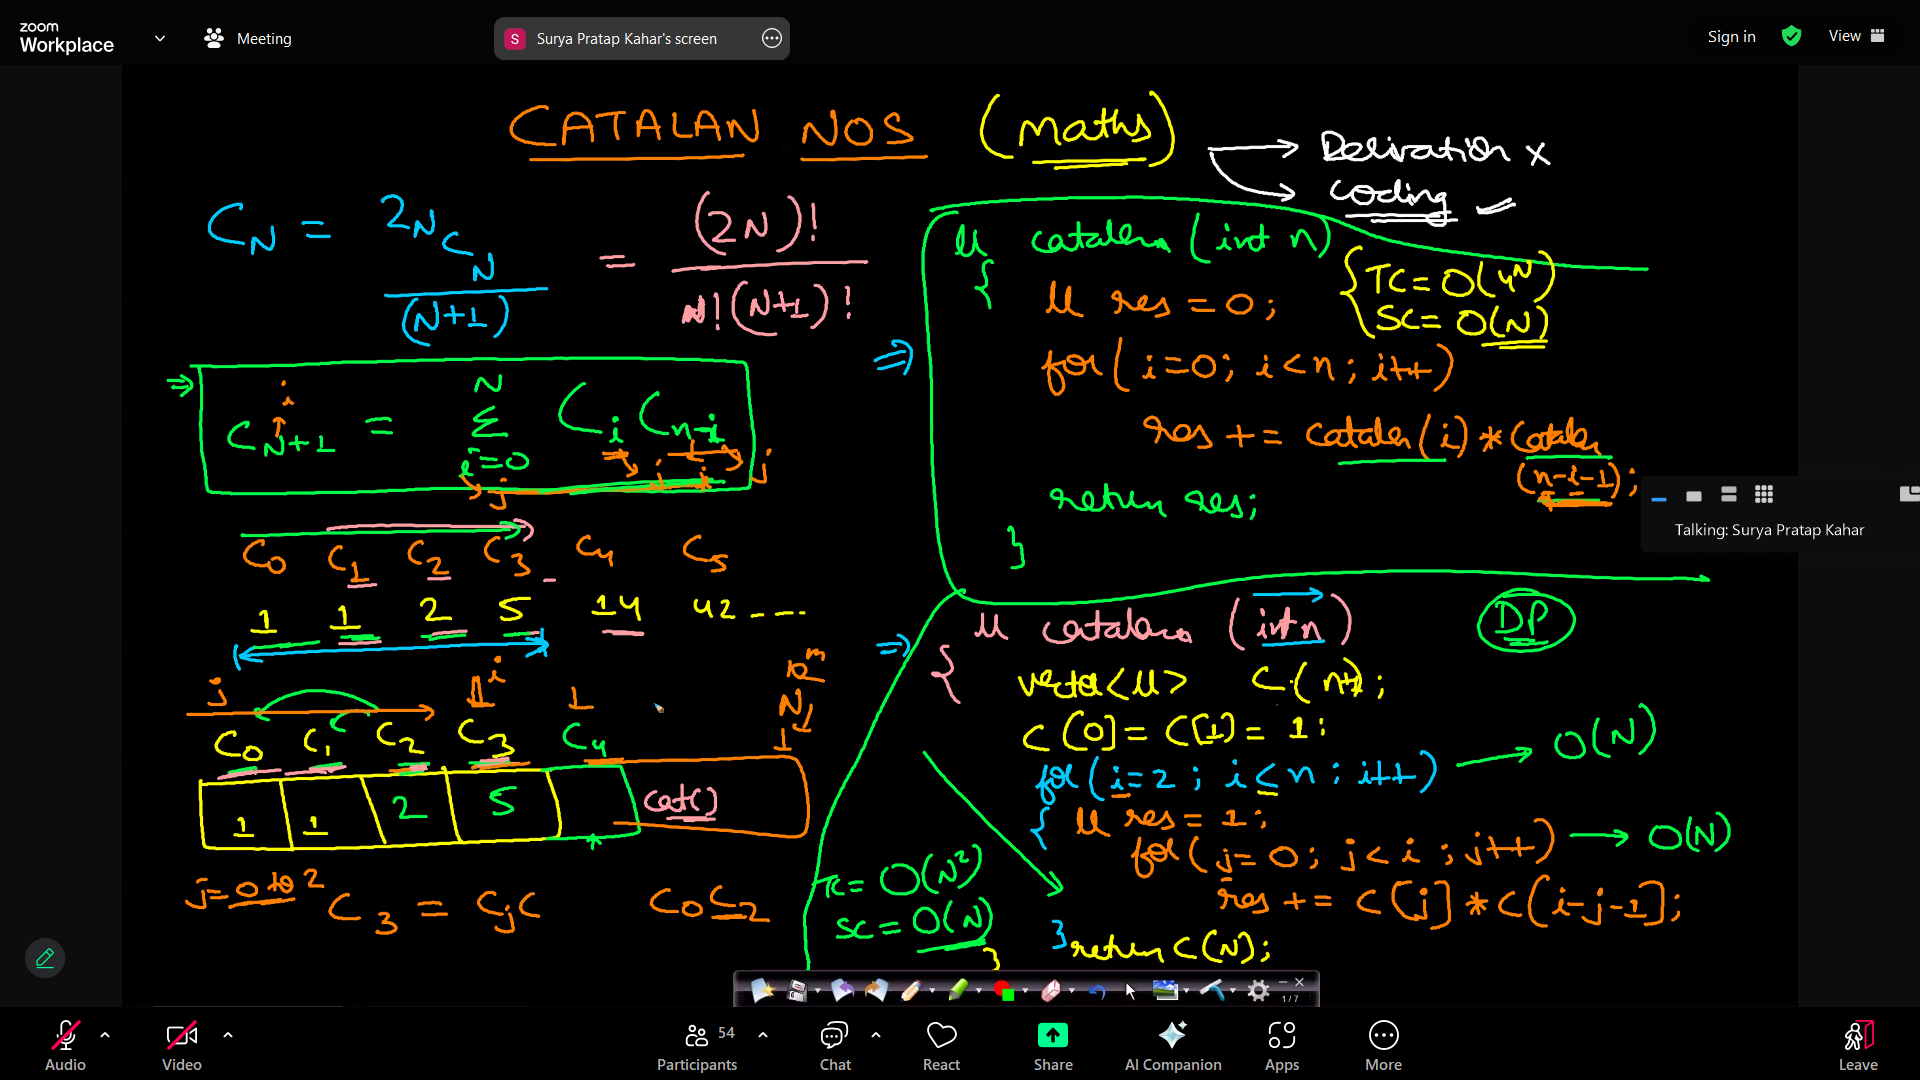 zoom
Workplace
Meeting
S Surya Pratap Kahar's screen
Sign in
View
CATALAN NOS (Maths)
Derivation x
coding
C_N = 2N C_N / (N+1) = (2N)! / N! (N+1)!
C_N+1 = N Σ i=0 C_i C_n-i
i
j
j
C0 C1 C2 C3 C4 C5
1 1 2 5 14 42 ----
j
i
1
10^m
N
1
C0 C1 C2 C3 C4
1 1 2 5 cat()
j=0 to 2
C3 = CjC C0C2
ll catalan (int n)
{
TC = O(4^N)
SC = O(N)
ll res = 0;
for (i=0; i<n; i++)
res += catalan(i) * catalan
(n-i-1);
return res;
}
ll catalan (int n)
DP
{
vector<ll> C(n+1);
C[0] = C[1] = 1;
for (i=2; i≤n; i++) → O(N)
{ ll res = 1;
for (j=0; j<i; j++) → O(N)
res += C[j] * C[i-j-1];
} return C(N);
}
TC = O(N²)
SC = O(N)
Talking: Surya Pratap Kahar
1/7
Audio
Video
54
Participants
Chat
React
Share
AI Companion
Apps
More
Leave